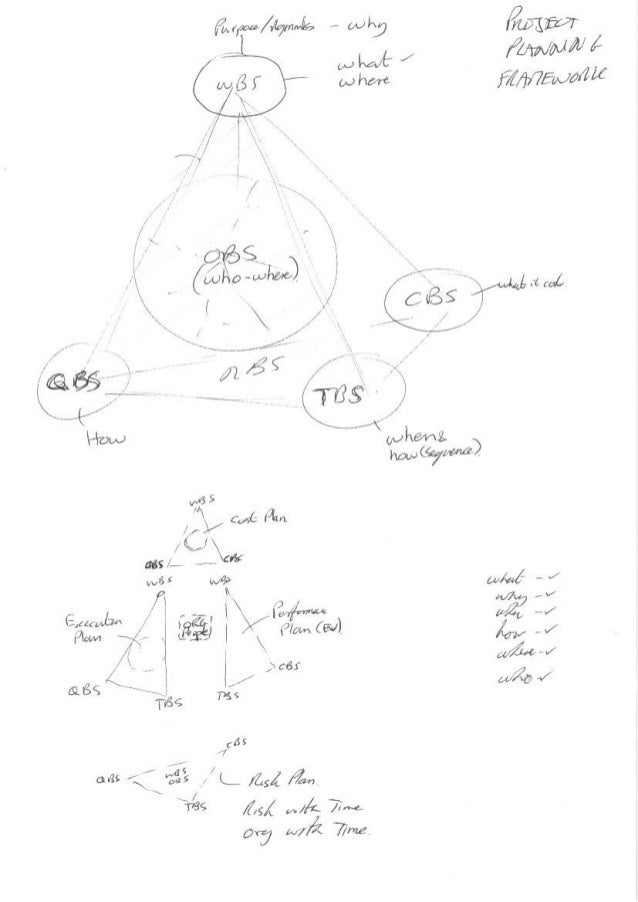 Purpose/ - why
PROJECT
PLANNING
FRAMEWORK
what
where
WBS
OBS
(who-where)
CBS
what it
RBS
QBS
TBS
How
when &
how (sequence)
WBS
Cost Plan
QBS
CBS
WBS
WBS
Execution
Plan
ORG
People
Performance
Plan (EV)
CBS
QBS
TBS
TBS
what -
why -
when -
how -
where -
who
CBS
QBS
WBS
OBS
TBS
Risk Plan
Risk with Time
Org with Time.